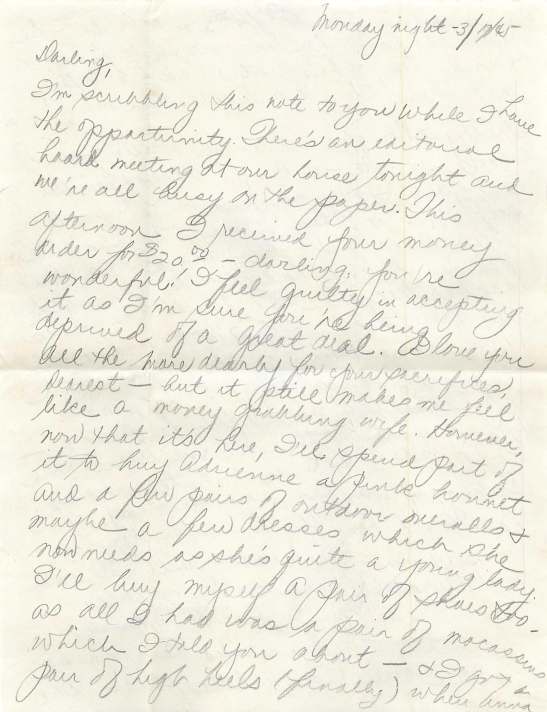 Monday night - 3/
Darling,
I'm scribbling this note to you while I have
the opportunity. There's an editorial
board meeting at our house tonight and
we're all busy on the paper. This
afternoon I received your money
order for $20.00 - darling, you're
wonderful! I feel guilty in accepting
it as I'm sure you're being
deprived of a great deal. I love you
all the more dearly for your sacrifices,
dearest - but it still makes me feel
like a money grabbing wife. However,
now that it's here, I'll spend part of
it to buy Adrienne a pink bonnet
and a few pairs of outdoor overalls &
maybe a few dresses which she
now needs as she's quite a young lady.
I'll buy myself a pair of shoes too -
as all I had was a pair of mocassins
which I told you about - & I got a
pair of high heels (finally) when Anna